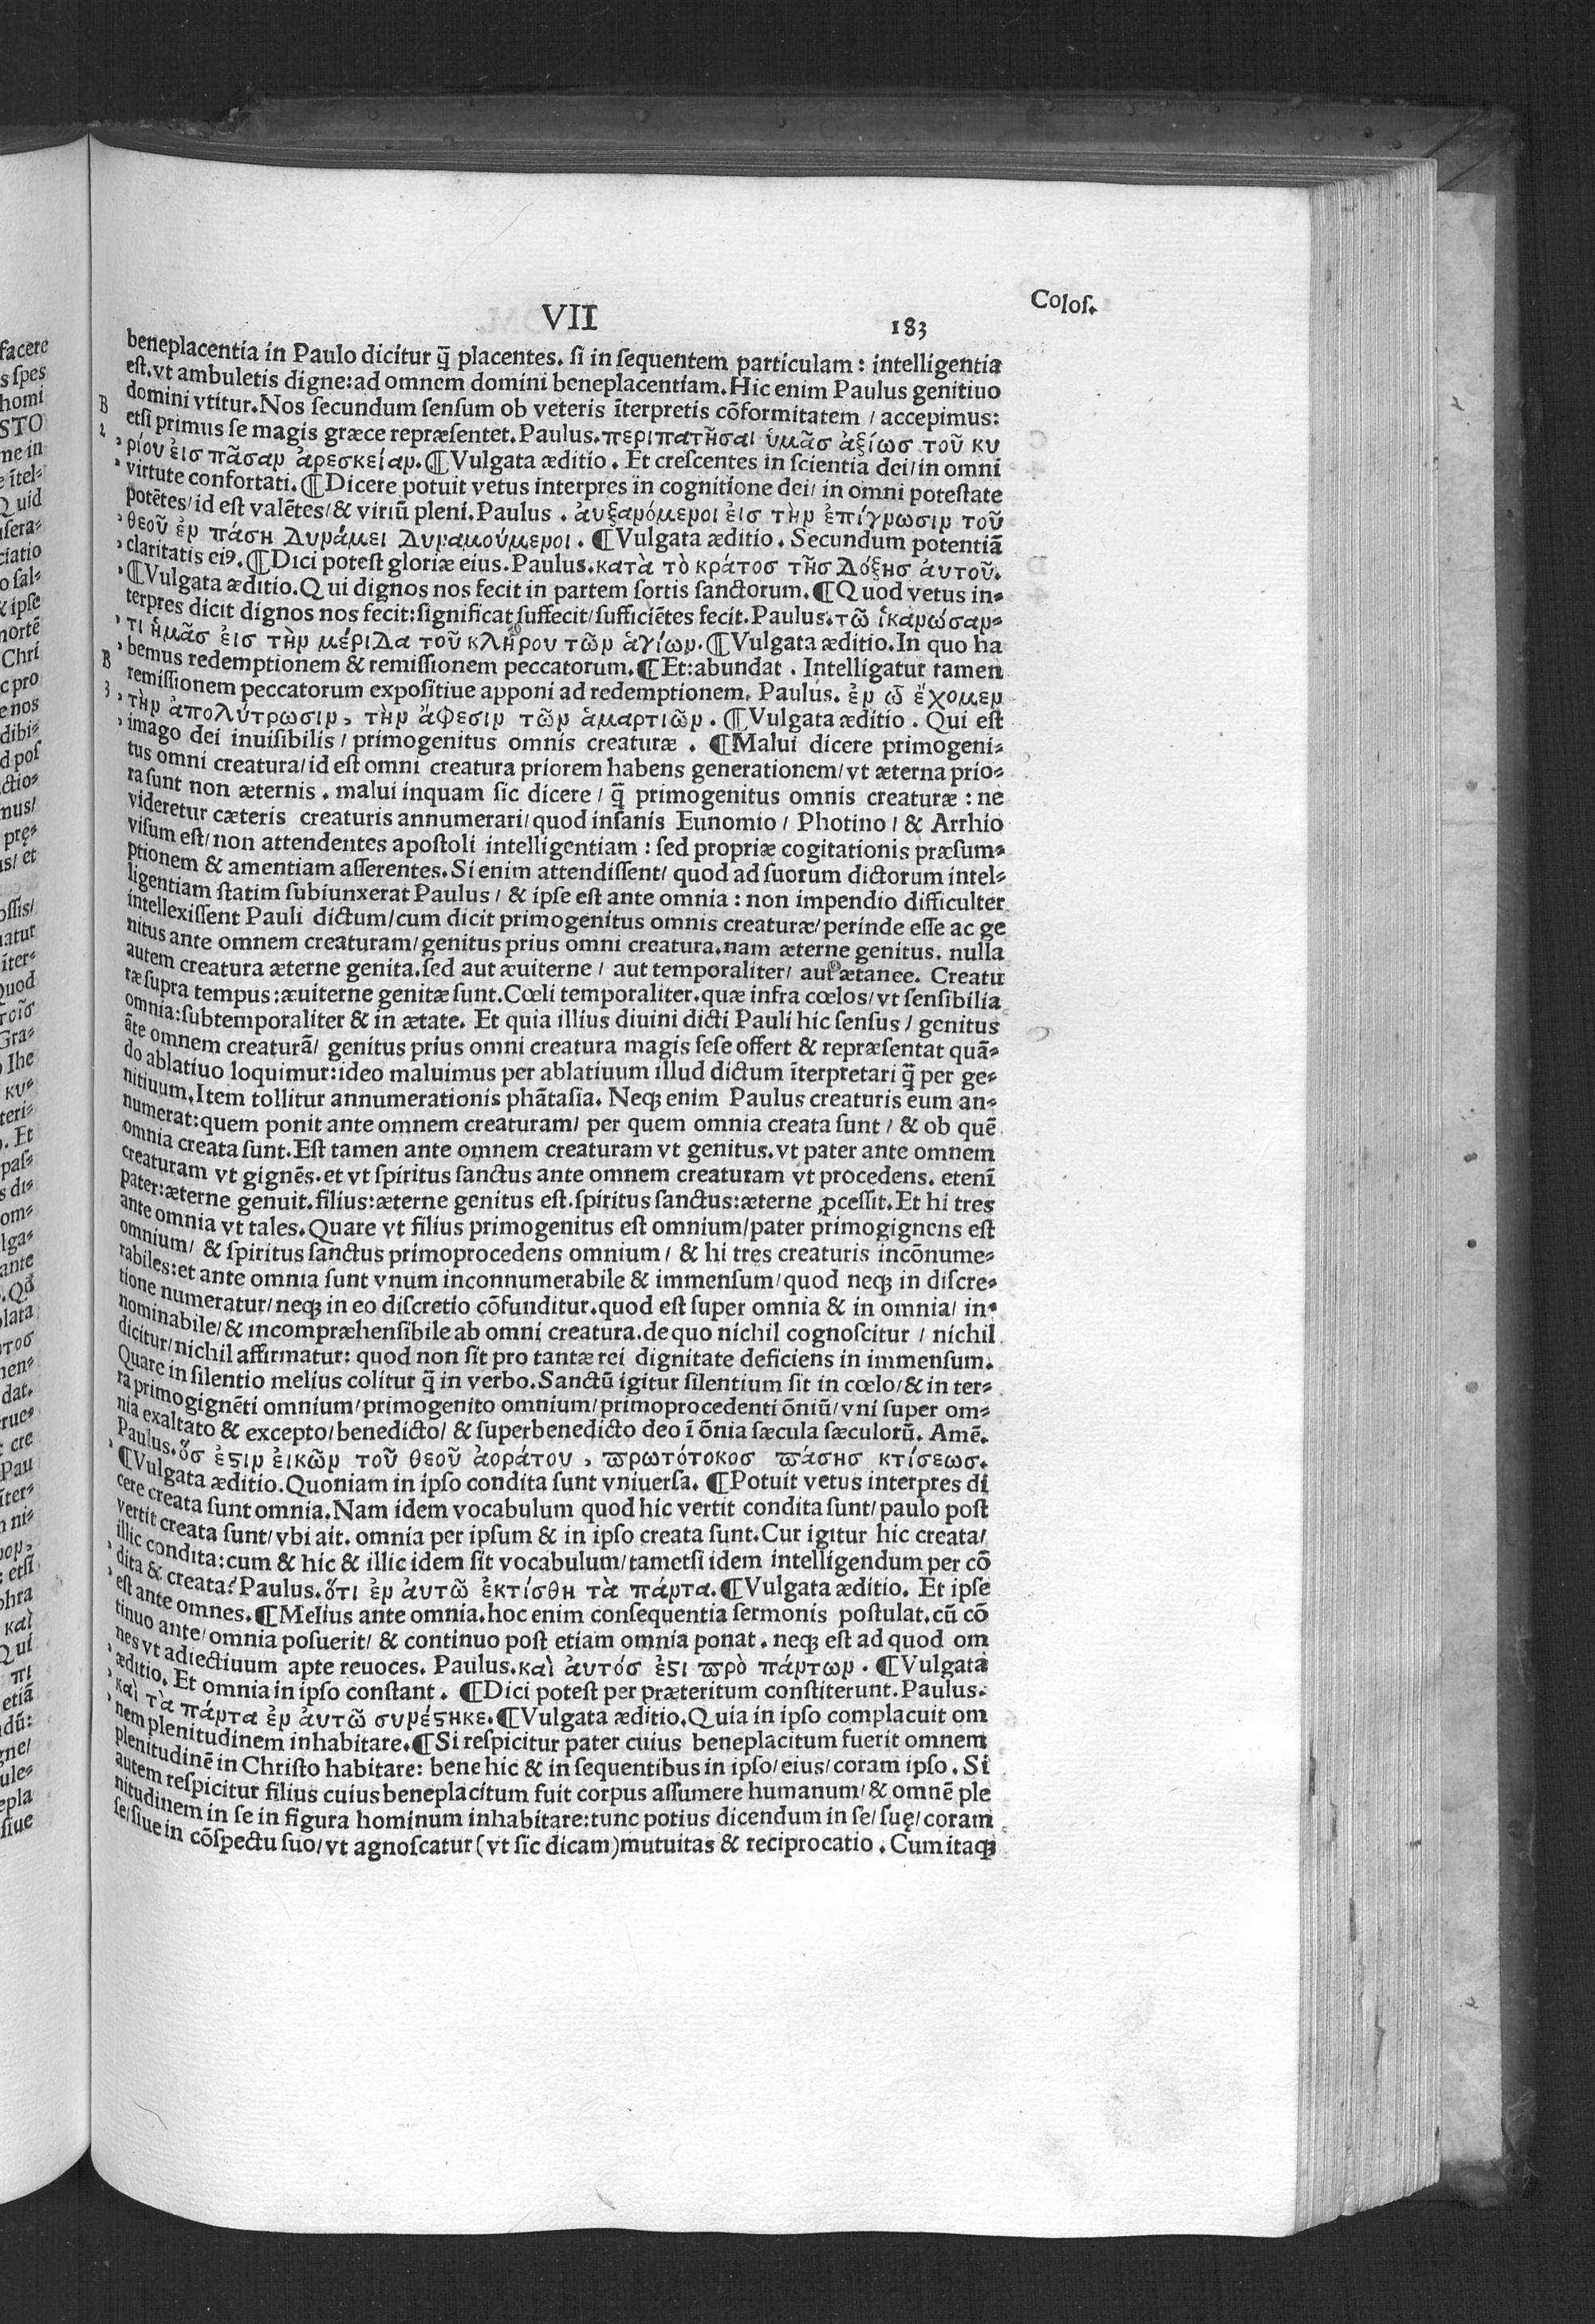 VII
183
Colos.
beneplacentia in Paulo dicitur q̃ placentes. si in sequentem particulam: intelligentia
est. vt ambuletis digne: ad omnem domini beneplacentiam. Hic enim Paulus genitiuo
domini vtitur. Nos secundum sensum ob veteris ĩterpretis cõformitatem / accepimus:
B
etsi primus se magis græce repræsentet. Paulus. περιπατῆσαι ὑμᾶσ ἀξίωσ τοῦ κυ
2
ρίου ἐισ πᾶσαν ἀρεσκείαν. ¶Vulgata æditio. Et crescentes in scientia dei/ in omni
virtute confortati. ¶Dicere potuit vetus interpres in cognitione dei/ in omni potestate
potẽtes/ id est valẽtes/ & viriũ pleni. Paulus. ἀυξανόμενοι ἐισ τὴν ἐπίγνωσιν τοῦ
θεοῦ ἐν πάσῃ δυνάμει δυναμούμενοι. ¶Vulgata æditio. Secundum potentiã
claritatis eiꝰ. ¶Dici potest gloriæ eius. Paulus. κατὰ τὸ κράτοσ τῆσ δόξησ ἀυτοῦ.
¶Vulgata æditio. Qui dignos nos fecit in partem sortis sanctorum. ¶Quod vetus in-
terpres dicit dignos nos fecit: significat suffecit/ sufficiẽtes fecit. Paulus. τῶ ἱκανώσαν-
τι ἡμᾶσ ἐισ τὴν μέριδα τοῦ κλήρου τῶν ἁγίων. ¶Vulgata æditio. In quo ha
B
bemus redemptionem & remissionem peccatorum. ¶Et: abundat. Intelligatur tamen
3
remissionem peccatorum expositiue apponi ad redemptionem. Paulus. ἐν ὧ ἔχομεν
τὴν ἀπολύτρωσιν, τὴν ἄφεσιν τῶν ἁμαρτιῶν. ¶Vulgata æditio. Qui est
imago dei inuisibilis / primogenitus omnis creaturæ. ¶Malui dicere primogeni-
tus omni creatura/ id est omni creatura priorem habens generationem/ vt æterna prio-
ra sunt non æternis. malui inquam sic dicere / q̃ primogenitus omnis creaturæ: ne
videretur cæteris creaturis annumerari/ quod insanis Eunomio / Photino / & Arrhio
visum est/ non attendentes apostoli intelligentiam: sed propriæ cogitationis præsum-
ptionem & amentiam asserentes. Si enim attendissent/ quod ad suorum dictorum intel-
ligentiam statim subiunxerat Paulus / & ipse est ante omnia: non impendio difficulter
intellexissent Pauli dictum/ cum dicit primogenitus omnis creaturæ/ perinde esse ac ge
nitus ante omnem creaturam/ genitus prius omni creatura. nam æterne genitus. nulla
autem creatura æterne genita. sed aut æuiterne / aut temporaliter/ aut ætanee. Creatu
ræ supra tempus: æuiterne genitæ sunt. Cœli temporaliter. quæ infra cœlos/ vt sensibilia
omnia: subtemporaliter & in ætate. Et quia illius diuini dicti Pauli hic sensus / genitus
ãte omnem creaturã/ genitus prius omni creatura magis sese offert & repræsentat quã-
do ablatiuo loquimur: ideo maluimus per ablatiuum illud dictum ĩterpretari q̃ per ge-
nitiuum. Item tollitur annumerationis phãtasia. Neqꝫ enim Paulus creaturis eum an-
numerat: quem ponit ante omnem creaturam/ per quem omnia creata sunt / & ob quẽ
omnia creata sunt. Est tamen ante omnem creaturam vt genitus. vt pater ante omnem
creaturam vt gignẽs. et vt spiritus sanctus ante omnem creaturam vt procedens. etenĩ
pater: æterne genuit. filius: æterne genitus est. spiritus sanctus: æterne ꝓcessit. Et hi tres
ante omnia vt tales. Quare vt filius primogenitus est omnium/ pater primogignens est
omnium/ & spiritus sanctus primoprocedens omnium / & hi tres creaturis incõnume-
rabiles: et ante omnia sunt vnum inconnumerabile & immensum/ quod neqꝫ in discre-
tione numeratur/ neqꝫ in eo discretio cõfunditur. quod est super omnia & in omnia/ in-
nominabile/ & incompræhensibile ab omni creatura. de quo nichil cognoscitur / nichil
dicitur/ nichil affirmatur: quod non sit pro tantæ rei dignitate deficiens in immensum.
Quare in silentio melius colitur q̃ in verbo. Sanctũ igitur silentium sit in cœlo/ & in ter-
ra primogignẽti omnium/ primogenito omnium/ primoprocedenti õniũ/ vni super om-
nia exaltato & excepto/ benedicto/ & superbenedicto deo ĩ õnia sæcula sæculorũ. Amẽ.
Paulus. ὅσ ἐϛιν ἐικὼν τοῦ θεοῦ ἀοράτου, ϖρωτότοκοσ ϖάσησ κτίσεωσ.
¶Vulgata æditio. Quoniam in ipso condita sunt vniuersa. ¶Potuit vetus interpres di
cere creata sunt omnia. Nam idem vocabulum quod hic vertit condita sunt/ paulo post
vertit creata sunt/ vbi ait. omnia per ipsum & in ipso creata sunt. Cur igitur hic creata/
illic condita: cum & hic & illic idem sit vocabulum/ tametsi idem intelligendum per cõ
dita & creata? Paulus. ὅτι ἐν ἀυτῶ ἐκτίσθη τὰ πάντα. ¶Vulgata æditio. Et ipse
est ante omnes. ¶Melius ante omnia. hoc enim consequentia sermonis postulat. cũ cõ
tinuo ante/ omnia posuerit/ & continuo post etiam omnia ponat. neqꝫ est ad quod om
nes vt adiectiuum apte reuoces. Paulus. καὶ ἀυτόσ ἐϛι ϖρὸ πάντων. ¶Vulgata
æditio. Et omnia in ipso constant. ¶Dici potest per præteritum constiterunt. Paulus.
καὶ τὰ πάντα ἐν ἀυτῶ συνέϛηκε. ¶Vulgata æditio. Quia in ipso complacuit om
nem plenitudinem inhabitare. ¶Si respicitur pater cuius beneplacitum fuerit omnem
plenitudinẽ in Christo habitare: bene hic & in sequentibus in ipso/ eius/ coram ipso. Si
autem respicitur filius cuius beneplacitum fuit corpus assumere humanum/ & omnẽ ple
nitudinem in se in figura hominum inhabitare: tunc potius dicendum in se/ suę/ coram
se/ siue in cõspectu suo/ vt agnoscatur (vt sic dicam) mutuitas & reciprocatio. Cum itaqꝫ